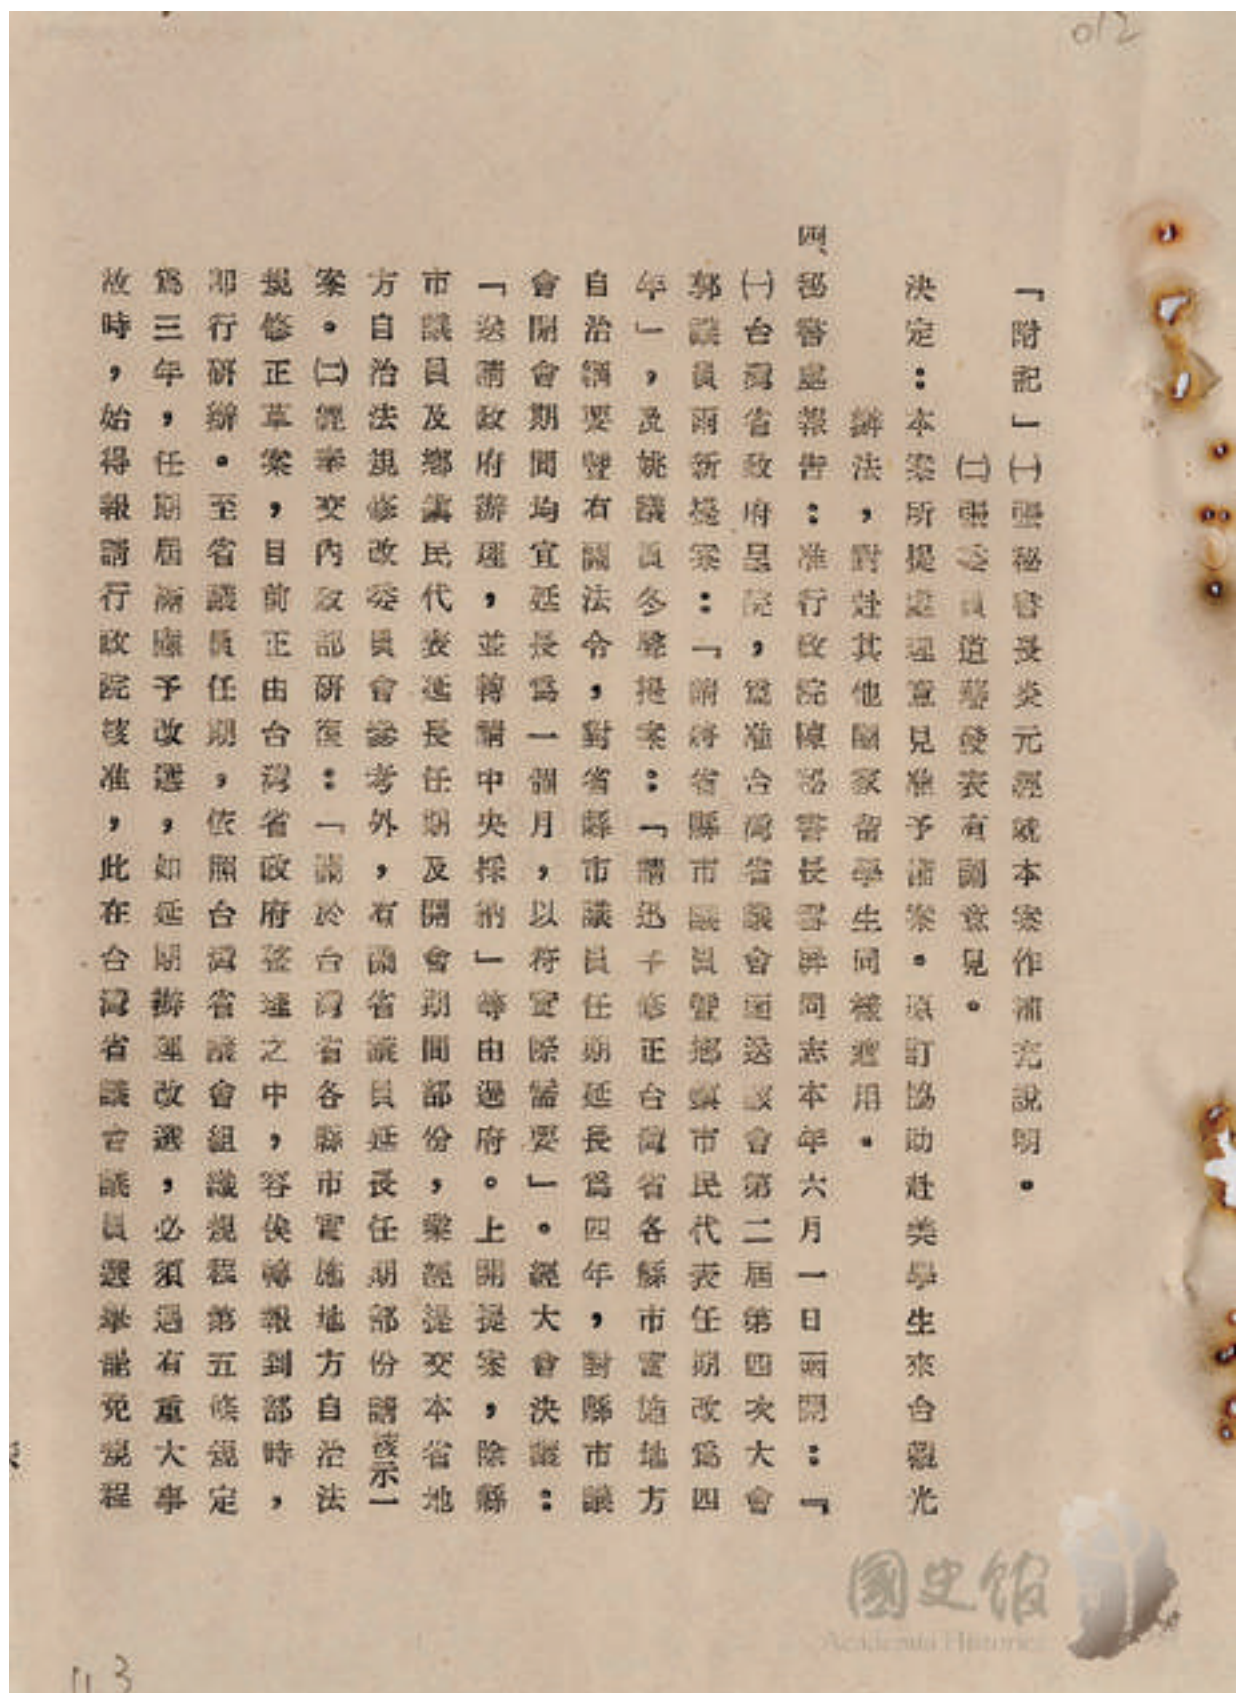 012
「附記」㈠張秘書長炎元經就本案作補充說明。
㈡張委員道藩發表有關意見。
決定：本案所提處理意見准予備案。原訂協助赴美學生來台觀光
辦法，對赴其他國家留學生同樣適用。
四、秘書處報告：准行政院陳秘書長雪屏同志本年六月一日函開：『
㈠台灣省政府呈院，為准台灣省議會函送該會第二屆第四次大會
郭議員雨新提案：「請將省縣市議員暨鄉鎮市民代表任期改為四
年」，及姚議員冬聲提案：「請迅予修正台灣省各縣市實施地方
自治綱要暨有關法令，對省縣市議員任期延長為四年，對縣市議
會開會期間均宜延長為一個月，以符實際需要」。經大會決議：
「送請政府辦理，並轉請中央採納」等由過府。上開提案，除縣
市議員及鄉鎮民代表延長任期及開會期間部份，業經提交本省地
方自治法規修改委員會參考外，有關省議員延長任期部份請核示一
案。㈡經奉交內政部研復：「關於台灣省各縣市實施地方自治法
規修正草案，目前正由台灣省政府整理之中，容俟轉報到部時，
即行研辦。至省議員任期，依照台灣省議會組織規程第五條規定
為三年，任期屆滿應予改選，如延期辦理改選，必須遇有重大事
故時，始得報請行政院核准，此在台灣省議會議員選舉罷免規程
國史館
Academia Historica
3